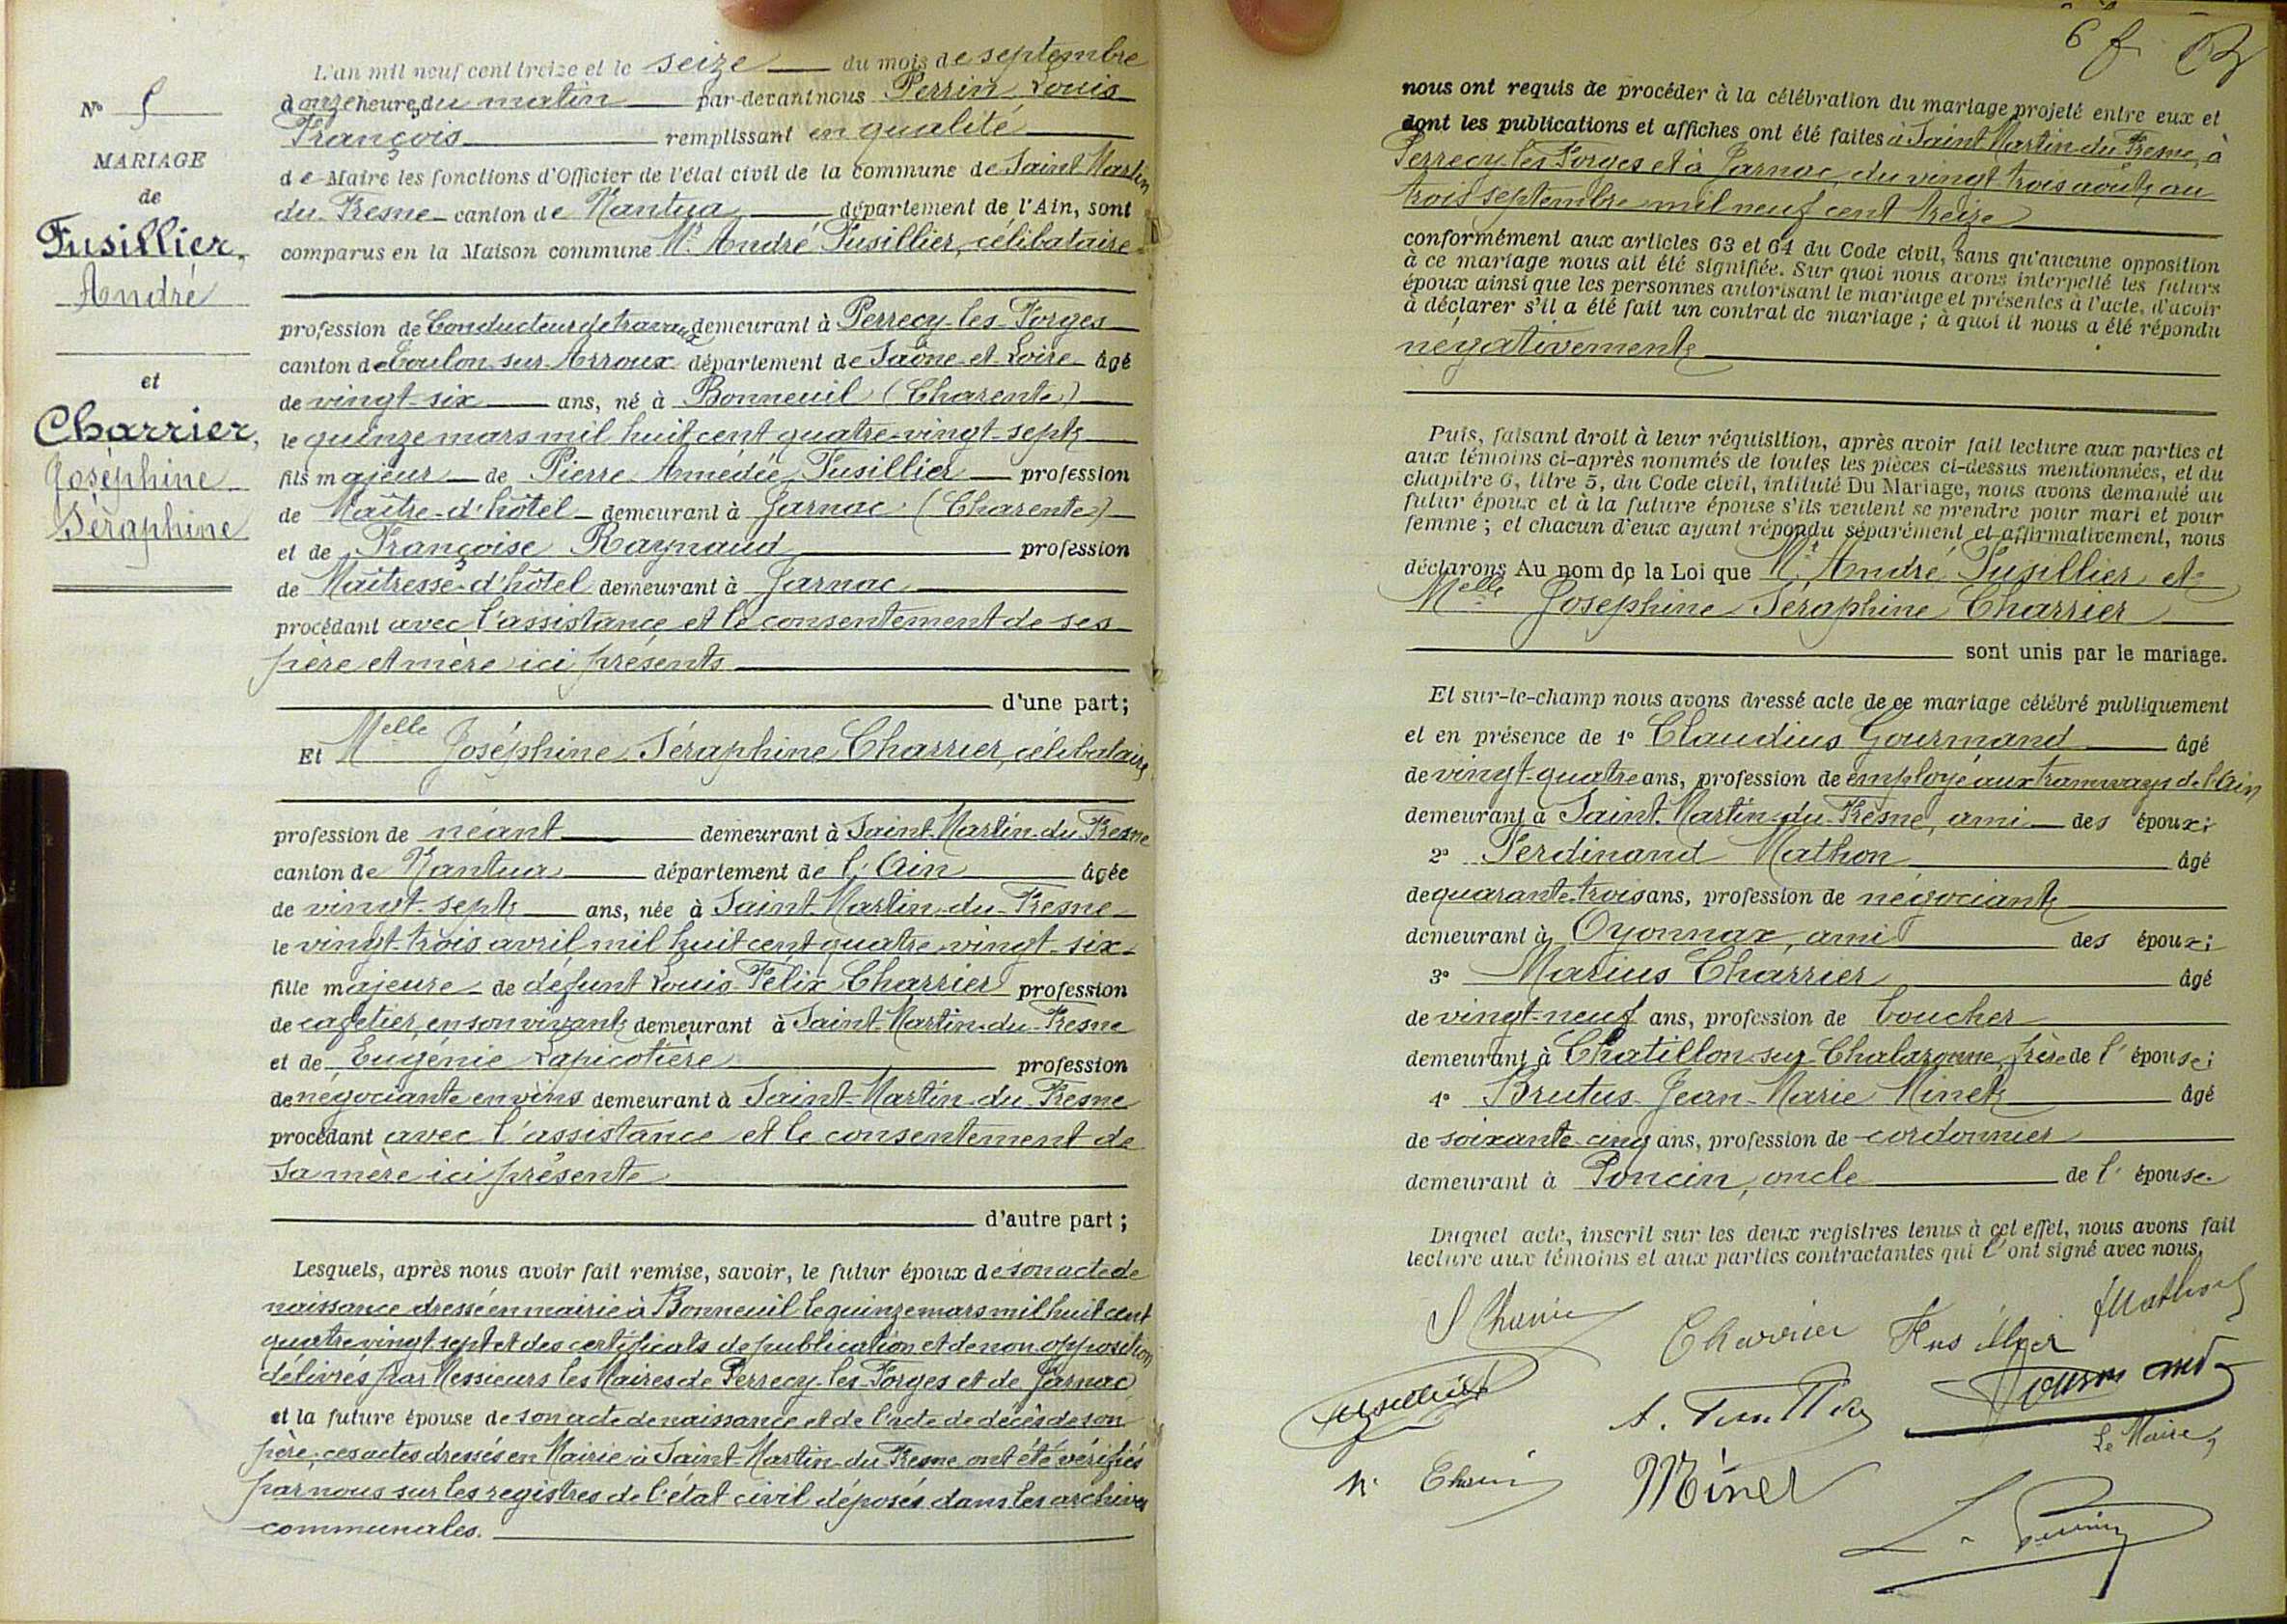 L'an mil neuf cent treize et le seize du mois de septembre
à onze heures du matin par-devant nous Perrin Louis
François remplissant en qualité
de Maire les fonctions d'Officier de l'état civil de la commune de Saint Martin
du Fresne canton de Nantua département de l'Ain, sont
comparus en la Maison commune Mr André Fusillier, célibataire
profession de Conducteur de travaux demeurant à Perrecy-les-Forges
canton de Toulon sur Arroux département de Saône-et-Loire âgé
de vingt-six ans, né à Bonneuil (Charente)
le quinze mars mil huit cent quatre-vingt-sept
fils majeur de Pierre Amédée Fusillier profession
de Maître-d'hôtel demeurant à Jarnac (Charente)
et de Françoise Raynaud profession
de Maîtresse-d'hôtel demeurant à Jarnac
procédant avec l'assistance et le consentement de ses
père et mère ici présents
d'une part;
Et Melle Joséphine Séraphine Charrier, célibataire
profession de néant demeurant à Saint-Martin-du-Fresne
canton de Nantua département de l'Ain âgée
de vingt-sept ans, née à Saint-Martin-du-Fresne
le vingt-trois avril mil huit cent quatre-vingt-six
fille majeure de défunt Louis-Félix Charrier profession
de cafetier, en son vivant demeurant à Saint-Martin-du-Fresne
et de Eugénie Lapicotière profession
de négociante en vins demeurant à Saint-Martin-du-Fresne
procédant avec l'assistance et le consentement de
sa mère ici présente
d'autre part;
Lesquels, après nous avoir fait remise, savoir, le futur époux de son acte de
naissance dressé en mairie à Bonneuil le quinze mars mil huit cent
quatre vingt sept et des certificats de publication et de non opposition
délivrés par Messieurs les Maires de Perrecy-les-Forges et de Jarnac
et la future épouse de son acte de naissance et de l'acte de décès de son
père; ces actes dressés en Mairie à Saint-Martin-du-Fresne ont été vérifiés
par nous sur les registres de l'état civil déposés dans les archives
communales.
No 5
MARIAGE
de
Fusillier,
André
et
Charrier,
Joséphine
Séraphine
6 f
nous ont requis de procéder à la célébration du mariage projeté entre eux et
dont les publications et affiches ont été faites à Saint Martin-du-Fresne, à
Perrecy les Forges et à Jarnac, du vingt-trois août, au
trois septembre mil neuf cent treize
conformément aux articles 63 et 64 du Code civil, sans qu'aucune opposition
à ce mariage nous ait été signifiée. Sur quoi nous avons interpellé les futurs
époux ainsi que les personnes autorisant le mariage et présentes à l'acte, d'avoir
à déclarer s'il a été fait un contrat de mariage; à quoi il nous a été répondu
négativement
Puis, faisant droit à leur réquisition, après avoir fait lecture aux parties et
aux témoins ci-après nommés de toutes les pièces ci-dessus mentionnées, et du
chapitre 6, titre 5, du Code civil, intitulé Du Mariage, nous avons demandé au
futur époux et à la future épouse s'ils veulent se prendre pour mari et pour
femme; et chacun d'eux ayant répondu séparément et affirmativement, nous
déclarons Au nom de la Loi que Mr André Fusillier et
Melle Joséphine Séraphine Charrier
sont unis par le mariage.
Et sur-le-champ nous avons dressé acte de ce mariage célébré publiquement
et en présence de 1º Claudius Gourmand âgé
de vingt-quatre ans, profession de employé aux tramways de l'Ain
demeurant à Saint-Martin-du-Fresne, ami des époux;
2º Ferdinand Mathon âgé
de quarante-trois ans, profession de négociant
demeurant à Oyonnax, ami des époux;
3º Marius Charrier âgé
de vingt-neuf ans, profession de boucher
demeurant à Chatillon sur Chalaronne, frère de l'épouse;
4º Brutus-Jean-Marie Minet âgé
de soixante-cinq ans, profession de cordonnier
demeurant à Poncin, oncle de l'épouse.
Duquel acte, inscrit sur les deux registres tenus à cet effet, nous avons fait
lecture aux témoins et aux parties contractantes qui l'ont signé avec nous.
Charrier
Mathon
Gourmand
Le Maire,
Minet
L. Perrin